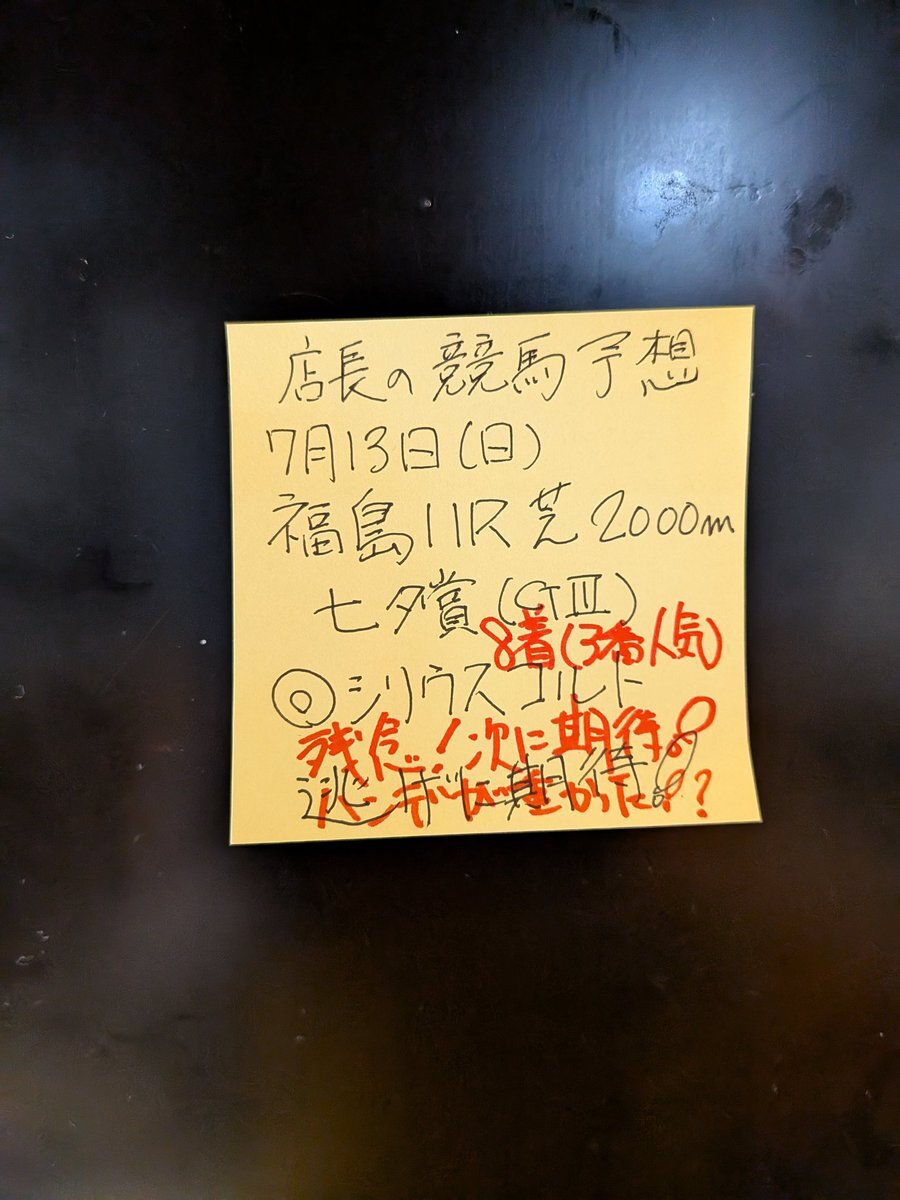 店長の競馬予想
7月13日(日)
福島11R 芝2000m
七夕賞(GⅢ)
8着(3番人気)
◎シリウスコルト
残念!次に期待!
逃げに期待!
ハンデが重かった!?